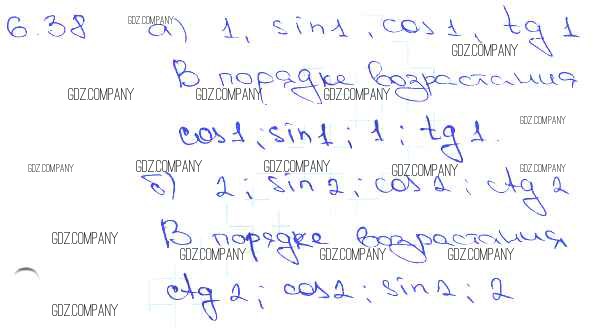 6.38 а) 1, sin1, cos1, tg 1
GDZ.COMPANY
GDZ.COMPANY
В порядке возрастания
GDZ.COMPANY GDZ.COMPANY GDZ.COMPANY
GDZ.COMPANY
cos1; sin1; 1; tg1.
GDZ.COMPANY GDZ.COMPANY GDZ.COMPANY GDZ.COMPANY GDZ.COMPANY
б) 2; sin2; cos2; ctg 2
В порядке возрастания
GDZ.COMPANY GDZ.COMPANY GDZ.COMPANY GDZ.COMPANY
ctg 2; cos2; sin2; 2
GDZ.COMPANY GDZ.COMPANY GDZ.COMPANY GDZ.COMPANY